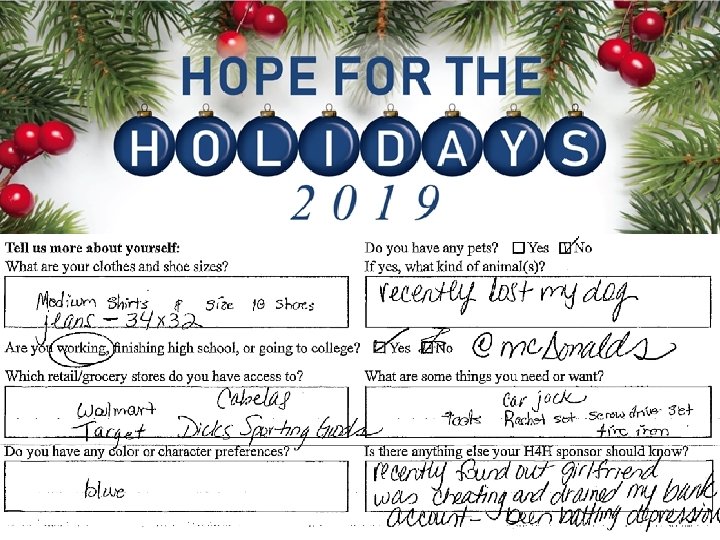 HOPE FOR THE
HOLIDAYS
2019
Tell us more about yourself:
What are your clothes and shoe sizes?
Medium Shirts & Size 10 Shoes
jeans - 34x32
Are you working, finishing high school, or going to college? Yes No @ mcDonalds
Which retail/grocery stores do you have access to?
Cabelas
Walmart
Target Dicks Sporting Goods
Do you have any color or character preferences?
blue
Do you have any pets? Yes No
If yes, what kind of animal(s)?
recently lost my dog
What are some things you need or want?
Car jack
Tools Rachet set screw drive set
tire iron
Is there anything else your H4H sponsor should know?
recently found out girlfriend
was cheating and drained my bank
account - been battling depression